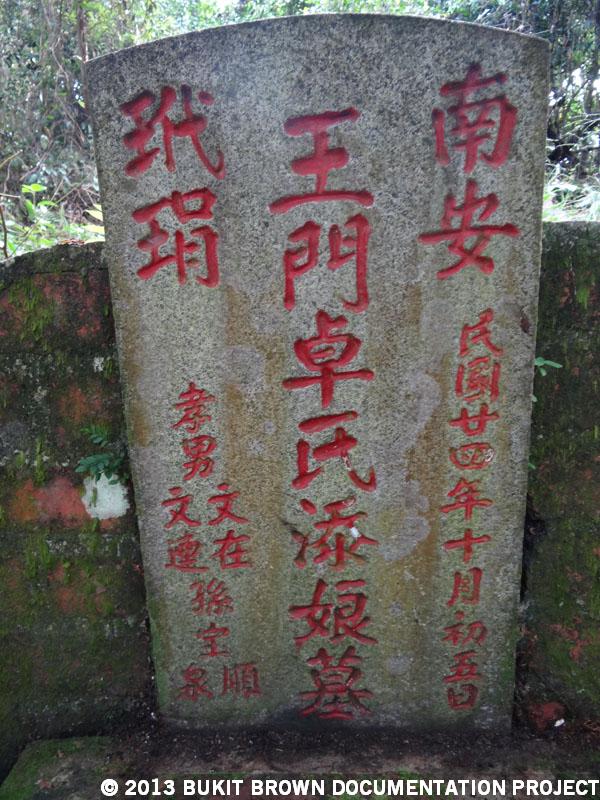 南安
玳琄
民國廿四年十月初五日
王門卓氏添娘墓
孝男 文在 文連 孫宝 順 泉
© 2013 BUKIT BROWN DOCUMENTATION PROJECT